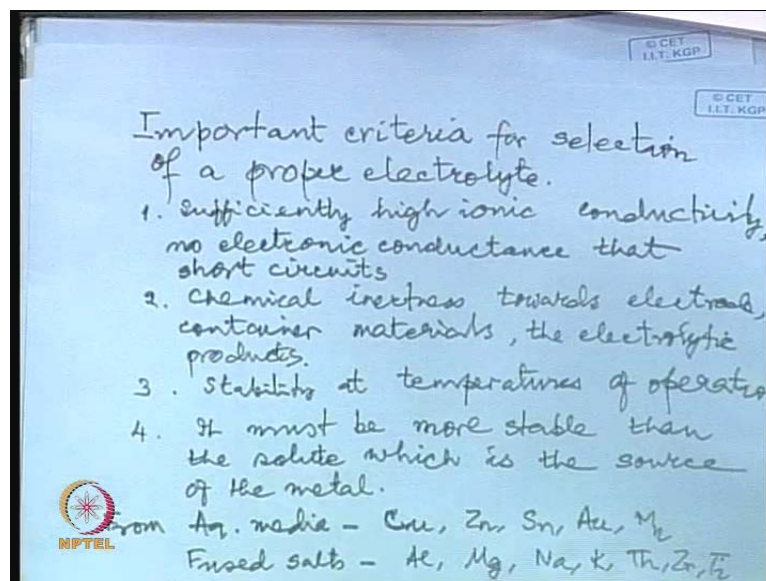 © CET
I.I.T. KGP
© CET
I.I.T. KGP
Important criteria for selection
of a proper electrolyte.
1. Sufficiently high ionic conductivity,
no electronic conductance that
short circuits
2. Chemical inertness towards electrode,
container materials, the electrolytic
products.
3. Stability at temperatures of operatio
4. It must be more stable than
the solute which is the source
of the metal.
From Aq. media - Cu, Zn, Sn, Au,
Fused salts - Al, Mg, Na, K, Th, Zr,
NPTEL